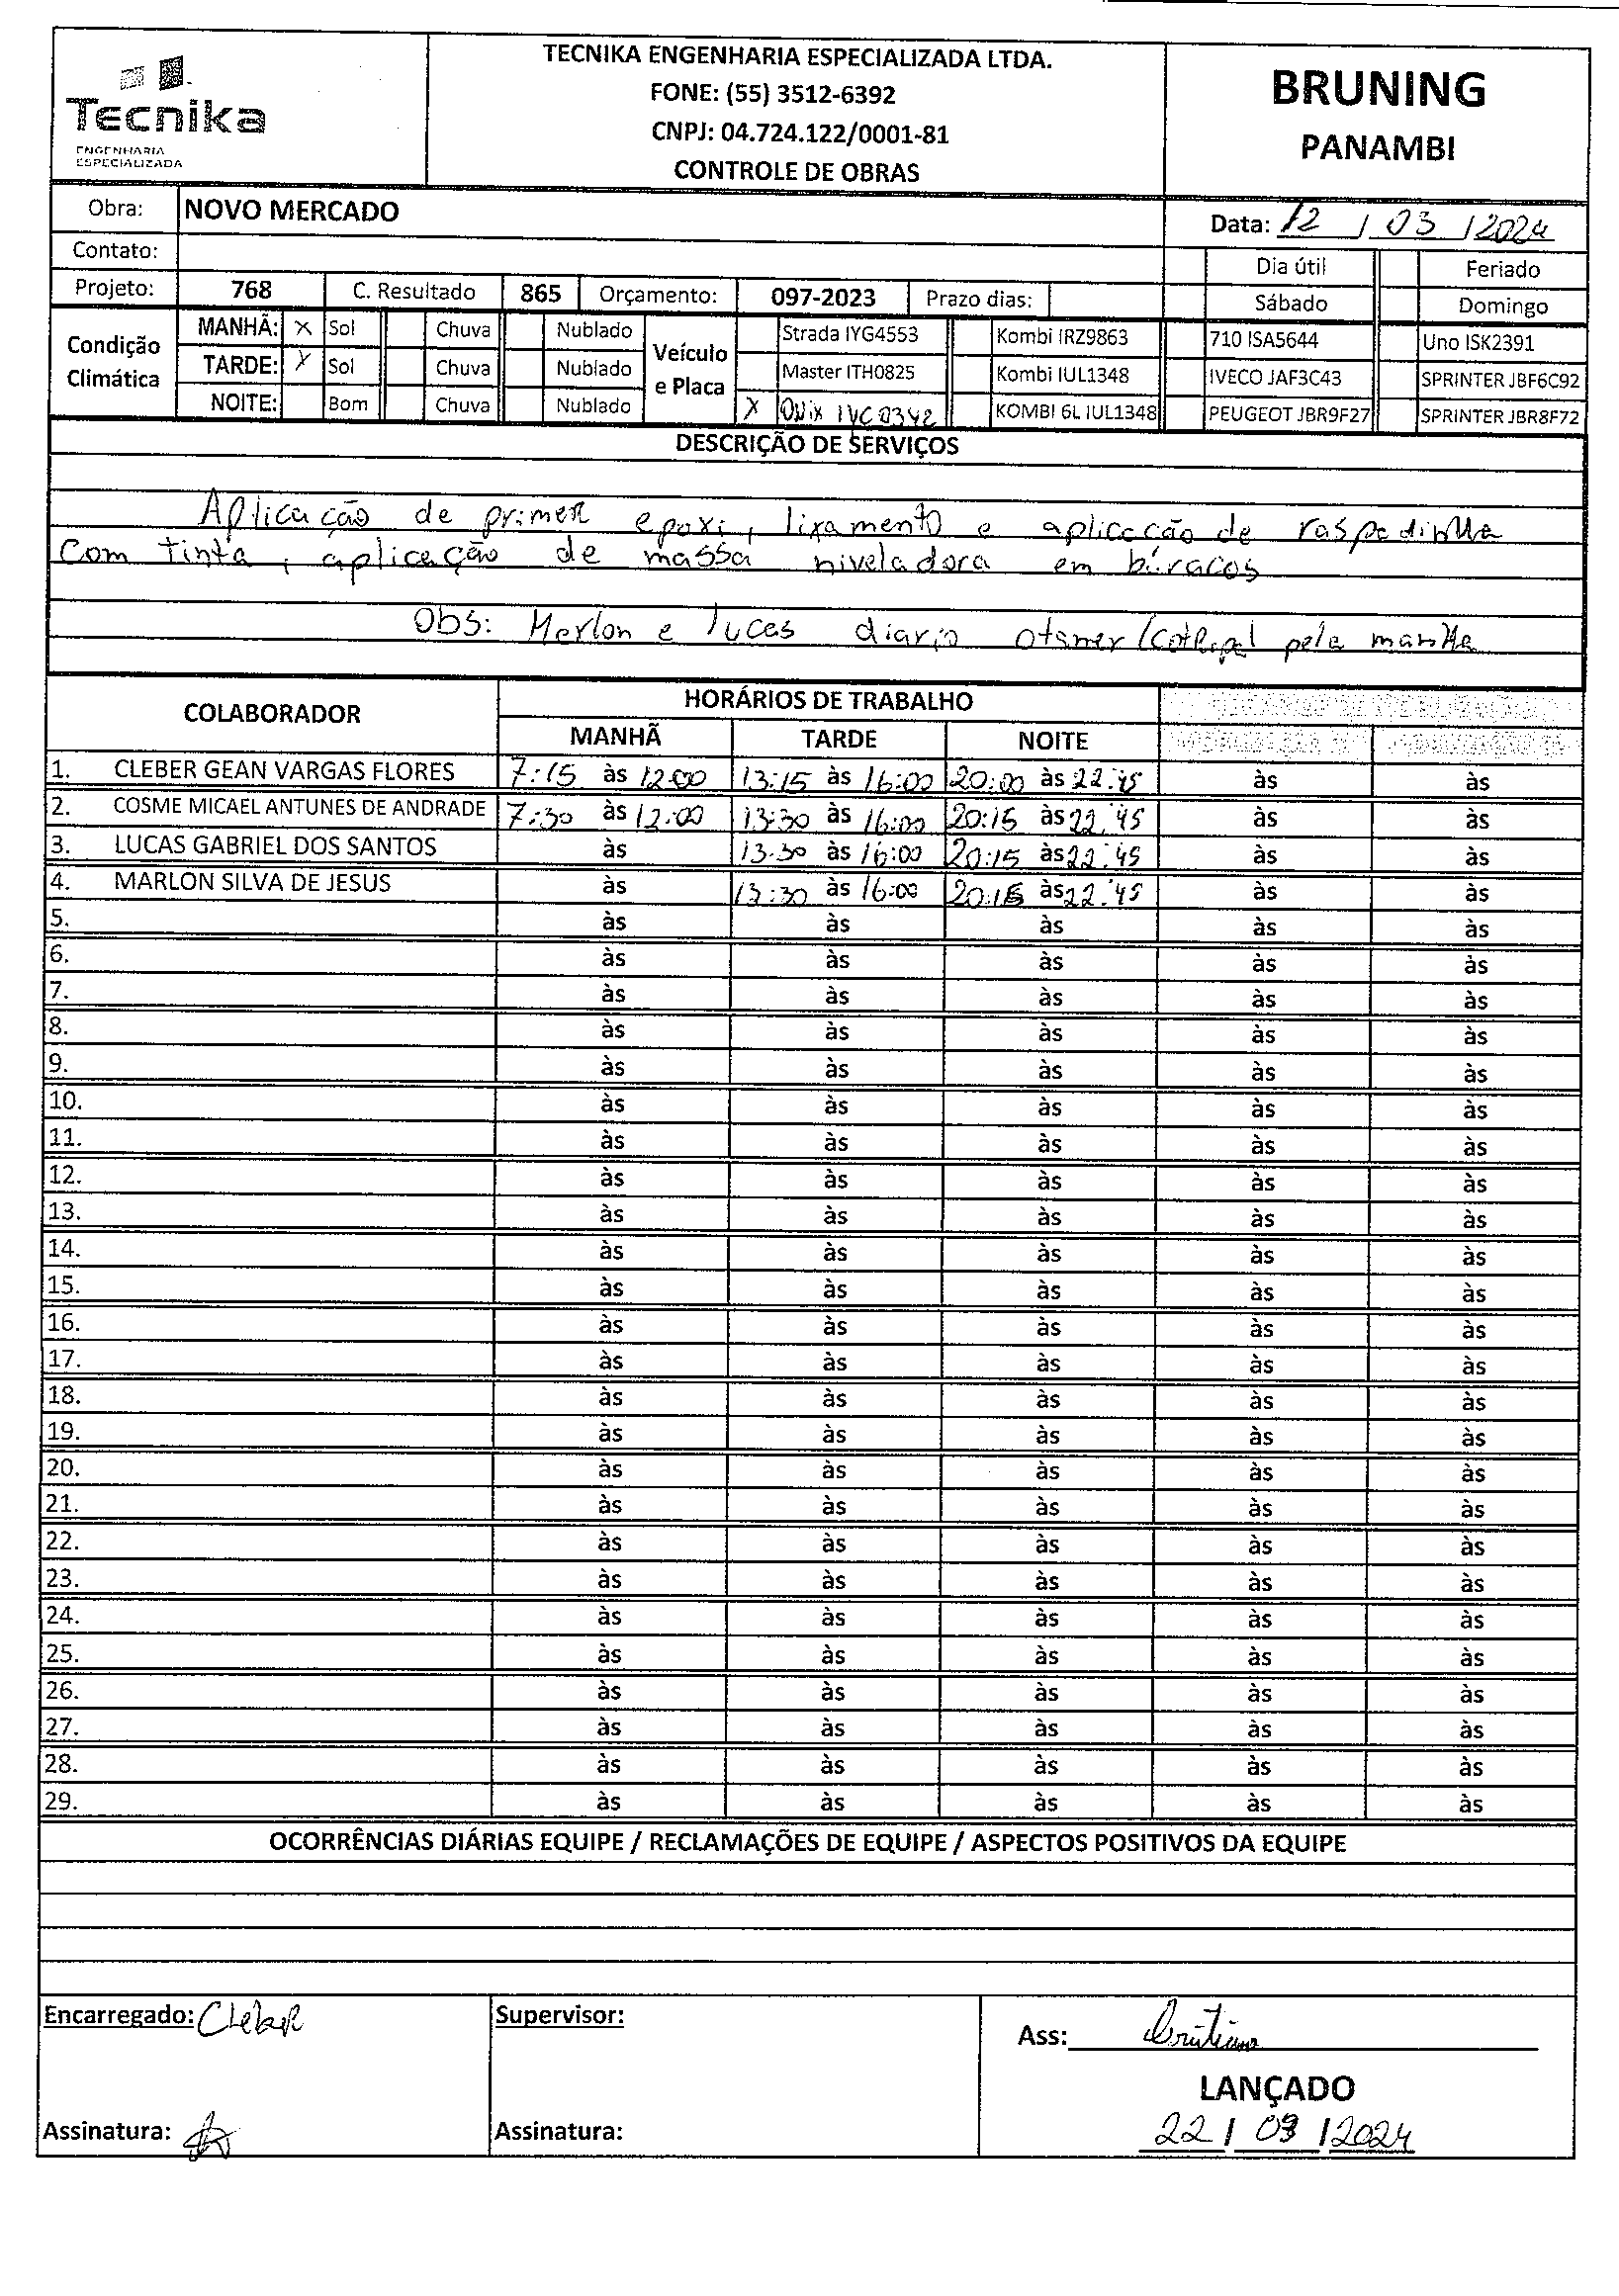 TECNIKA ENGENHARIA ESPECIALIZADA LTDA.
FONE: (55) 3512-6392
CNPJ: 04.724.122/0001-81
CONTROLE DE OBRAS
Tecnika
ENGENHARIA
ESPECIALIZADA
BRUNING
PANAMBI
Obra: NOVO MERCADO
Data: 12 / 03 / 2024
Contato:
Dia útil Feriado
Projeto: 768 C. Resultado 865 Orçamento: 097-2023 Prazo dias:
Sábado Domingo
Condição Climática
Veículo e Placa
MANHÃ: X Sol Chuva Nublado Strada IYG4553 Kombi IRZ9863 710 ISA5644 Uno ISK2391
TARDE: X Sol Chuva Nublado Master ITH0825 Kombi IUL1348 IVECO JAF3C43 SPRINTER JBF6C92
NOITE: Bom Chuva Nublado X ONix IVC0342 KOMBI 6L IUL1348 PEUGEOT JBR9F27 SPRINTER JBR8F72
DESCRIÇÃO DE SERVIÇOS
Aplicação de primer epoxi, lixamento e aplicação de raspadinha
com tinta, aplicação de massa niveladora em buracos
Obs: Marlon e lucas diario pela manha
COLABORADOR HORÁRIOS DE TRABALHO
MANHÃ TARDE NOITE
1. CLEBER GEAN VARGAS FLORES 7:15 às 12:00 13:15 às 16:00 20:00 às 22:45 às às
2. COSME MICAEL ANTUNES DE ANDRADE 7:30 às 12:00 13:30 às 16:00 20:15 às 22:45 às às
3. LUCAS GABRIEL DOS SANTOS às 13:30 às 16:00 20:15 às 22:45 às às
4. MARLON SILVA DE JESUS às 13:30 às 16:00 20:15 às 22:45 às às
5. às às às às às
6. às às às às às
7. às às às às às
8. às às às às às
9. às às às às às
10. às às às às às
11. às às às às às
12. às às às às às
13. às às às às às
14. às às às às às
15. às às às às às
16. às às às às às
17. às às às às às
18. às às às às às
19. às às às às às
20. às às às às às
21. às às às às às
22. às às às às às
23. às às às às às
24. às às às às às
25. às às às às às
26. às às às às às
27. às às às às às
28. às às às às às
29. às às às às às
OCORRÊNCIAS DIÁRIAS EQUIPE / RECLAMAÇÕES DE EQUIPE / ASPECTOS POSITIVOS DA EQUIPE
Encarregado: Cleber Supervisor: Ass: Cristiano
LANÇADO
Assinatura: Assinatura: 22 / 03 / 2024